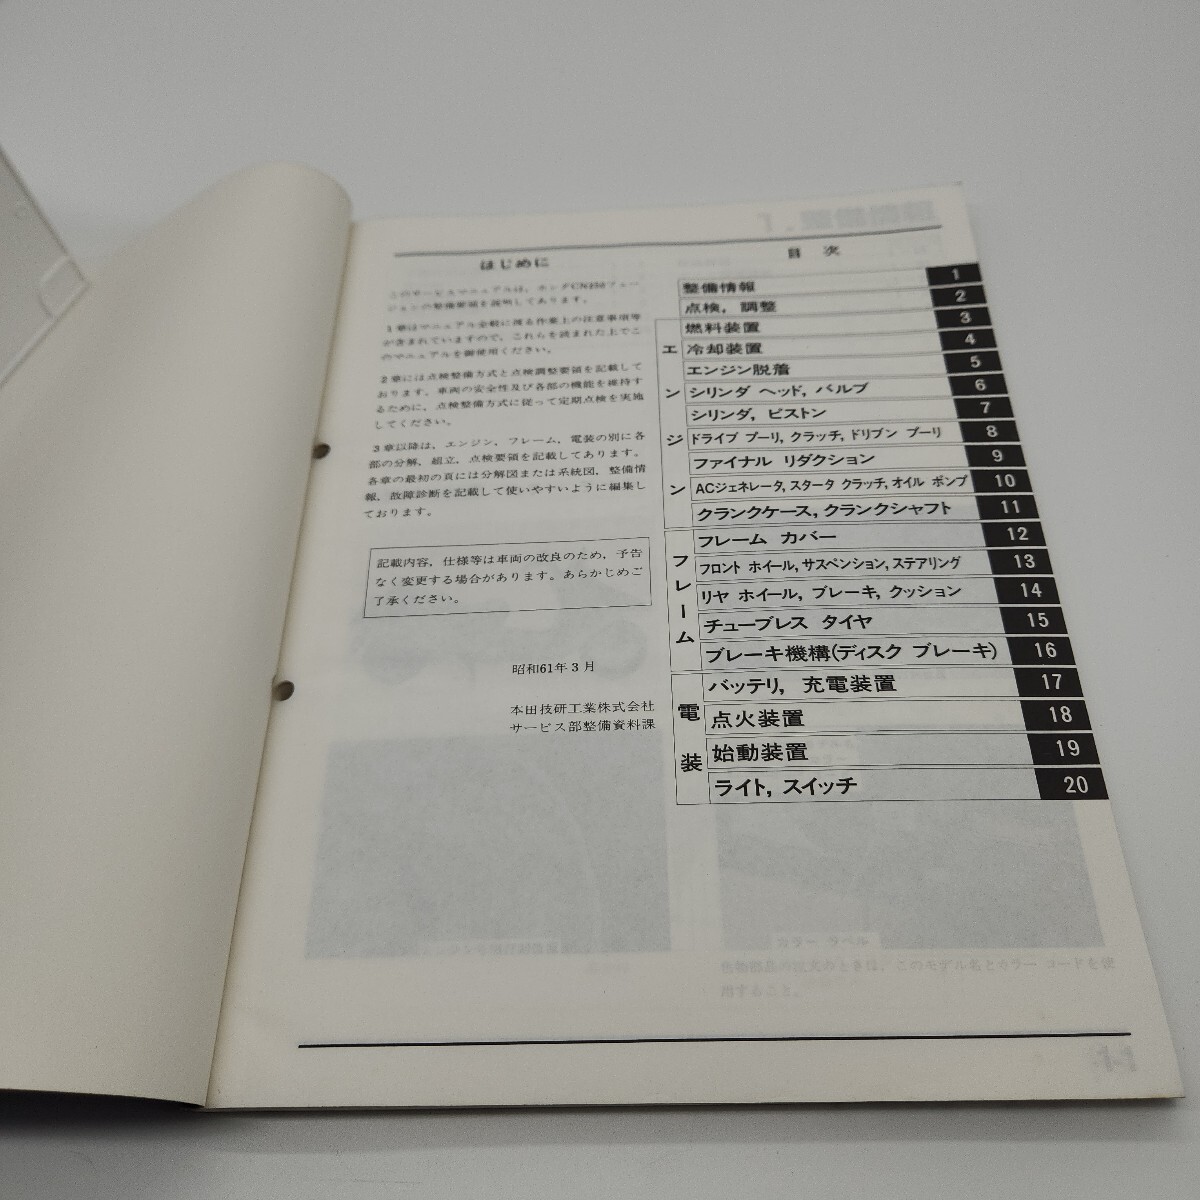 はじめに
このサービスマニュアルは、ホンダCN250フュー
ジョンの整備要領を説明してあります。
1章はマニュアル全般に渡る作業上の注意事項等
が含まれていますので、これらを読まれた上でこ
のマニュアルを御使用ください。
2章には点検整備方式と点検調整要領を記載して
おります。車両の安全性及び各部の機能を維持す
るために、点検整備方式に従って定期点検を実施
してください。
3章以降は、エンジン、フレーム、電装の別に各
部の分解、組立、点検要領を記載してあります。
各章の最初の頁には分解図または系統図、整備情
報、故障診断を記載して使いやすいように編集し
ております。
記載内容、仕様等は車両の改良のため、予告
なく変更する場合があります。あらかじめご
了承ください。
昭和61年3月
本田技研工業株式会社
サービス部整備資料課
目 次
整備情報 1
点検，調整 2
エンジン
燃料装置 3
冷却装置 4
エンジン脱着 5
シリンダ ヘッド，バルブ 6
シリンダ，ピストン 7
ドライブ プーリ，クラッチ，ドリブン プーリ 8
ファイナル リダクション 9
ACジェネレータ，スタータ クラッチ，オイル ポンプ 10
クランクケース，クランクシャフト 11
フレーム
フレーム カバー 12
フロント ホイール，サスペンション，ステアリング 13
リヤ ホイール，ブレーキ，クッション 14
チューブレス タイヤ 15
ブレーキ機構（ディスク ブレーキ） 16
電装
バッテリ，充電装置 17
点火装置 18
始動装置 19
ライト，スイッチ 20